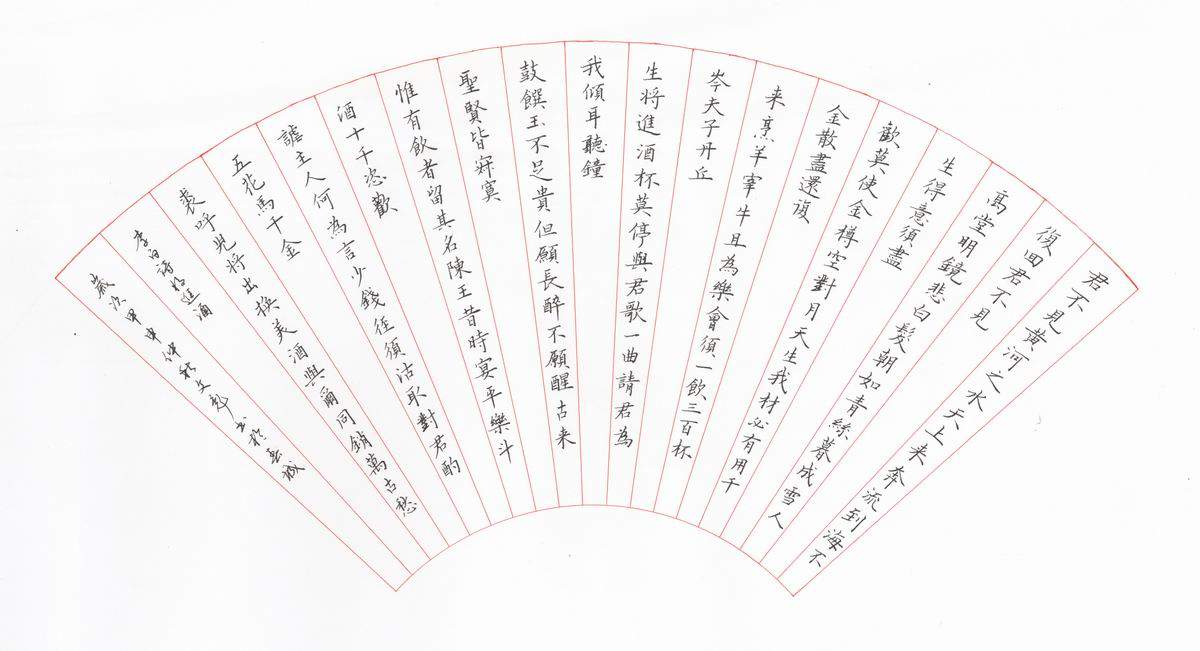 君不見黄河之水天上来奔流到海不
復回君不見
高堂明鏡悲白髮朝如青絲暮成雪人
生得意須盡
歡莫使金樽空對月天生我材必有用千
金散盡還復
来烹羊宰牛且為樂會須一飲三百杯
岑夫子丹丘
生将進酒杯莫停與君歌一曲請君為
我傾耳聽鐘
鼓饌玉不足貴但願長醉不願醒古来
聖賢皆寂寞
惟有飲者留其名陳王昔時宴平樂斗
酒十千恣歡
謔主人何為言少錢徑須沽取對君酌
五花馬千金
裘呼兒将出換美酒與爾同銷萬古愁
李白詩将進酒
歲次甲申仲秋書於城